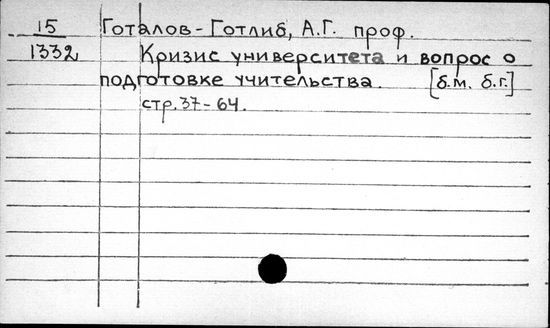 15 Готалов-Готлиб, А.Г. проф.
1332 Кризис университета и вопрос о
подготовке учительства. [б.м. б.г.]
стр.37-64.